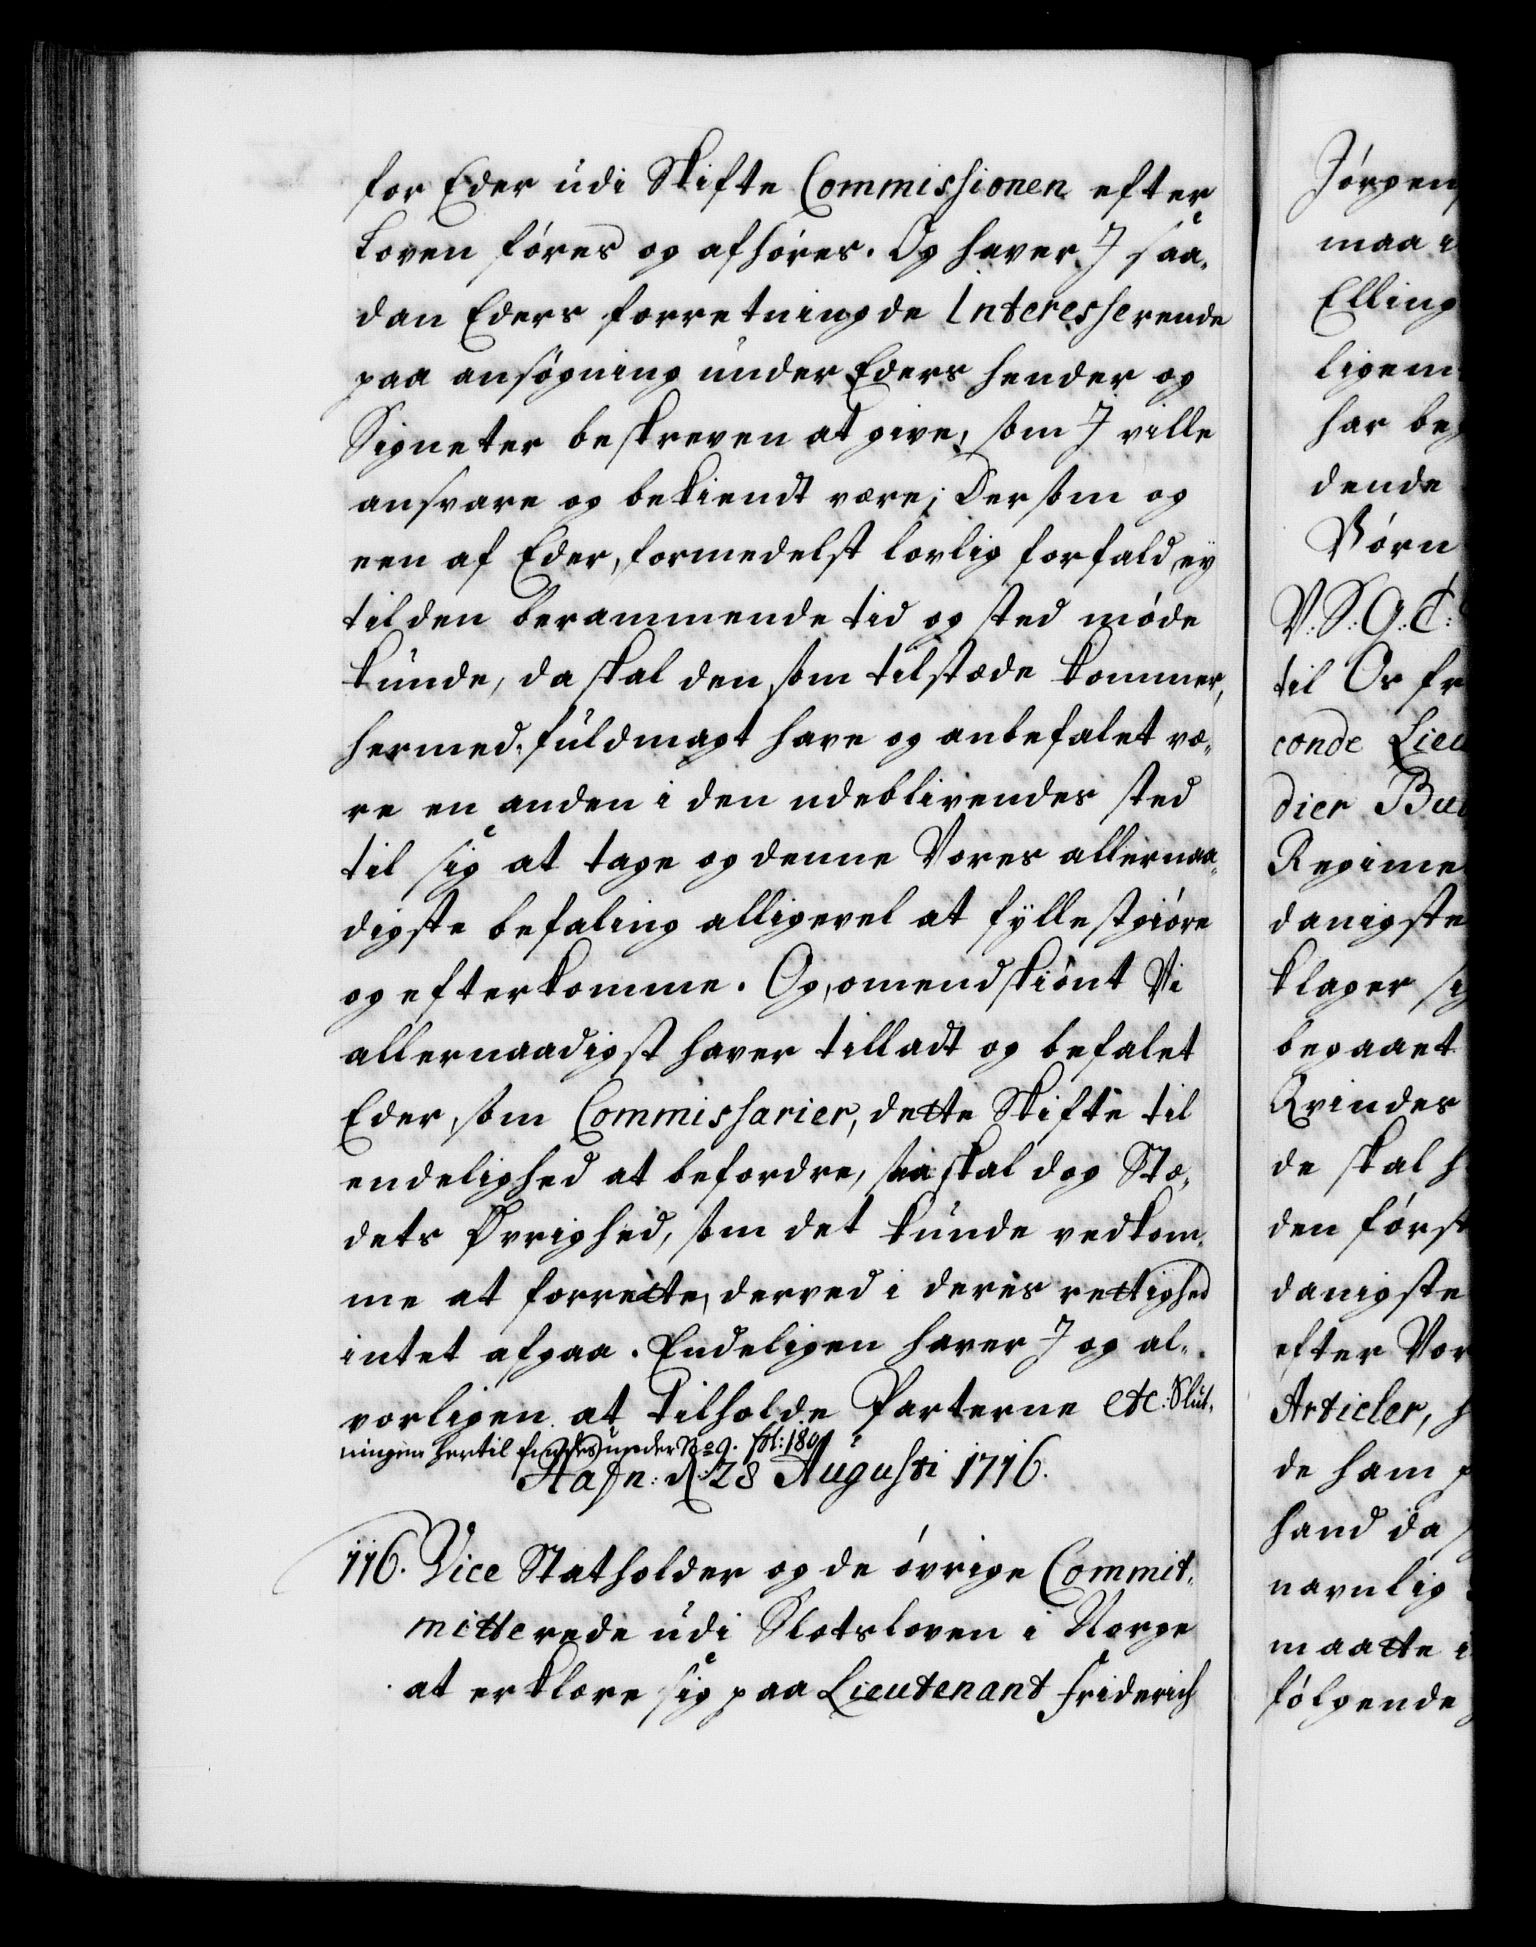 for Eder udi Skifte Commissionen efter
Loven føres og afhøres. Og haver J saa„
dan Eders forretning de Interesserende
paa ansøgning under Eders hender og
Signeter beskreven at give, som J ville
ansvare og bekiendt være; Dersom og
een af Eder, formedelst lovlig forfald, ey
til den berammende tid og sted møde
kunde, da skal den som tilstæde kommer,
hermed fuldmagt have og anbefalet væ„
re en anden i den udeblivendes sted
til sig at tage og denne Vores allernaa„
digste befaling alligevel at fyllestgiøre
og efterkomme. Og, omendskiønt Vi
allernaadigst haver tilladt og befalet
Eder, som Commissarier, dette Skifte til
endelighed at befordre, saa skal dog Stæ„
dets Øvrighed, som det kunde vedkom„
me at forrette, derved i deres rettighed
intet afgaa. Endeligen haver J og al„
vorligen at tilholde Parterne etc: Slut„
ningen hertil findes under No 9. fol: 180
Hafn: d: 28 Augusti 1716.
116. Vice Statholder og de øvrige Commit„
mitterede udi Slotsloven i Norge
at erklære sig paa Lieutenant Friderich
Jørgen
maa i
Elling
ligem
har beg
dende
Børn
V: S: G: T:
til Os fr
conde Lieu
dier Bu
Regime
danigste
klager sig
begaaet
Qvindes
de skal h
den først
danigste
efter Vor
Articler, h
de ham
hand da
navnlig
maatte i
følgende